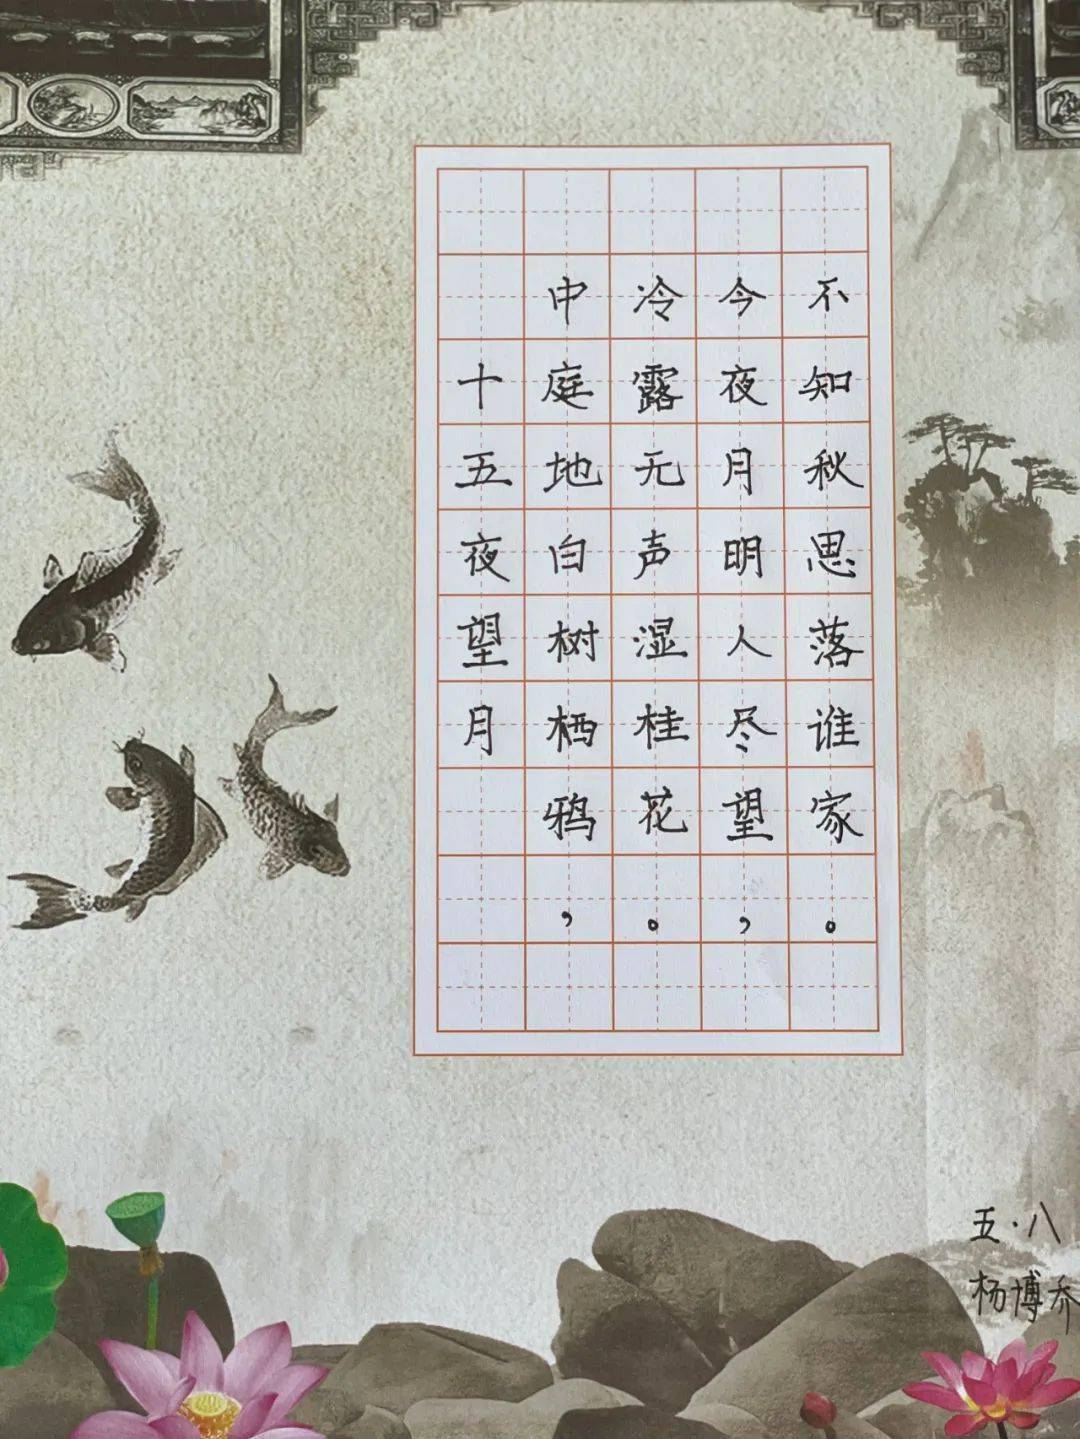 十五夜望月
中庭地白树栖鸦，
冷露无声湿桂花。
今夜月明人尽望，
不知秋思落谁家。
五·八
杨博乔